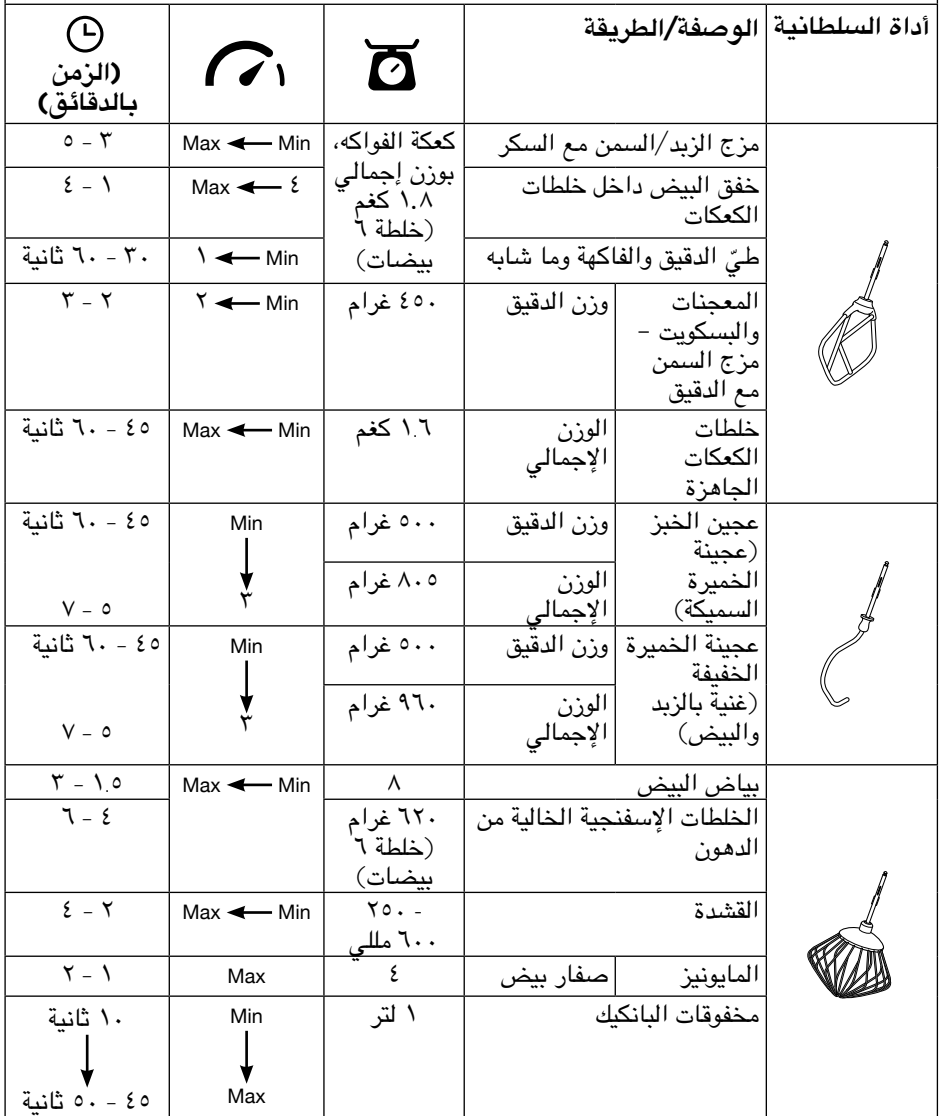 أداة السلطانية
الوصفة/الطريقة
(الزمن
بالدقائق)
مزج الزبد/السمن مع السكر
كعكة الفواكه،
بوزن إجمالي
١.٨ كغم
(خلطة ٦
بيضات)
Min
Max
٣ - ٥
خفق البيض داخل خلطات
الكعكات
٤
Max
١ - ٤
طيّ الدقيق والفاكهة وما شابه
Min
١
٣٠ - ٦٠ ثانية
المعجنات
والبسكويت -
مزج السمن
مع الدقيق
وزن الدقيق
٤٥٠ غرام
Min
٢
٢ - ٣
خلطات
الكعكات
الجاهزة
الوزن
الإجمالي
١.٦ كغم
Min
Max
٤٥ - ٦٠ ثانية
عجين الخبز
(عجينة
الخميرة
السميكة)
وزن الدقيق
٥٠٠ غرام
الوزن
الإجمالي
٨٠٥ غرام
Min
٣
٤٥ - ٦٠ ثانية
٥ - ٧
عجينة الخميرة
الخفيفة
(غنية بالزبد
والبيض)
وزن الدقيق
٥٠٠ غرام
الوزن
الإجمالي
٩٦٠ غرام
Min
٣
٤٥ - ٦٠ ثانية
٥ - ٧
بياض البيض
٨
Min
Max
١.٥ - ٣
الخلطات الإسفنجية الخالية من
الدهون
٦٢٠ غرام
(خلطة ٦
بيضات)
٤ - ٦
القشدة
٢٥٠ -
٦٠٠ مللي
Min
Max
٢ - ٤
المايونيز
صفار بيض
٤
Max
١ - ٢
مخفوقات البانكيك
١ لتر
Min
Max
١٠ ثانية
٤٥ - ٥٠ ثانية